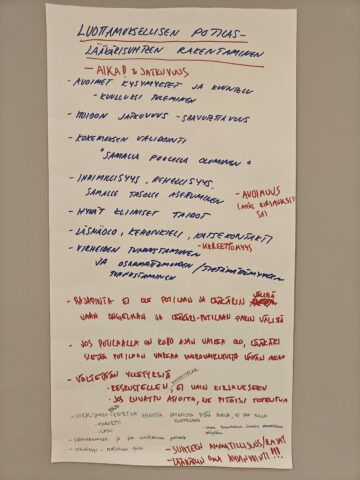 LUOTTAMUKSELLISEN POTILAS-
LÄÄKÄRISUHTEEN RAKENTAMINEN
- AIKA & JATKUVUUS
- AVOIMET KYSYMYKSET JA KUUNTELU
- KUULLUKSI TULEMINEN
- HOIDON JATKUVUUS - SAAVUTETTAVUUS
- KOKEMUKSEN VALIDOINTI
"SAMALLA PUOLELLA OLEMINEN"
- INHIMILLISYYS, REHELLISYYS,
SAMALLE TASOLLE ASETTUMINEN
- AVOIMUUS
(MYÖS KIRJAUKSISSA)
- HYVÄT KLIINISET TAIDOT
- LÄSNÄOLO, KEHONKIELI, KATSEKONTAKTI
- KIIREETTÖMYYS
- VIRHEIDEN TUNNUSTAMINEN
JA OSAAMATTOMUUDEN / TIETÄMÄTTÖMYYDEN
TUNNUSTAMINEN
- RAJAPINTA EI OLE POTILAAN JA LÄÄKÄRIN VÄLISSÄ
VAAN ONGELMAN JA LÄÄKÄRI-POTILAAN PARIN VÄLISSÄ
- JOS POTILAALLA ON KOKO AJAN VAIKEA OLO, LÄÄKÄRI
SIETÄÄ POTILAAN VAIKEAA VUOROVAIKUTUSTA JONKIN AIKAA
- VÄLTETÄÄN YLLÄTYKSIÄ
- KESKUSTELLEN, EI VAIN KIRJAUKSEEN
- JOS LUVATTU ASIOITA, NE PITÄISI TOTEUTUA
- SUHTEEN AMMATILLISUUS / RAJAT
- LÄÄKÄRIN OMA HYVINVOINTI !!!